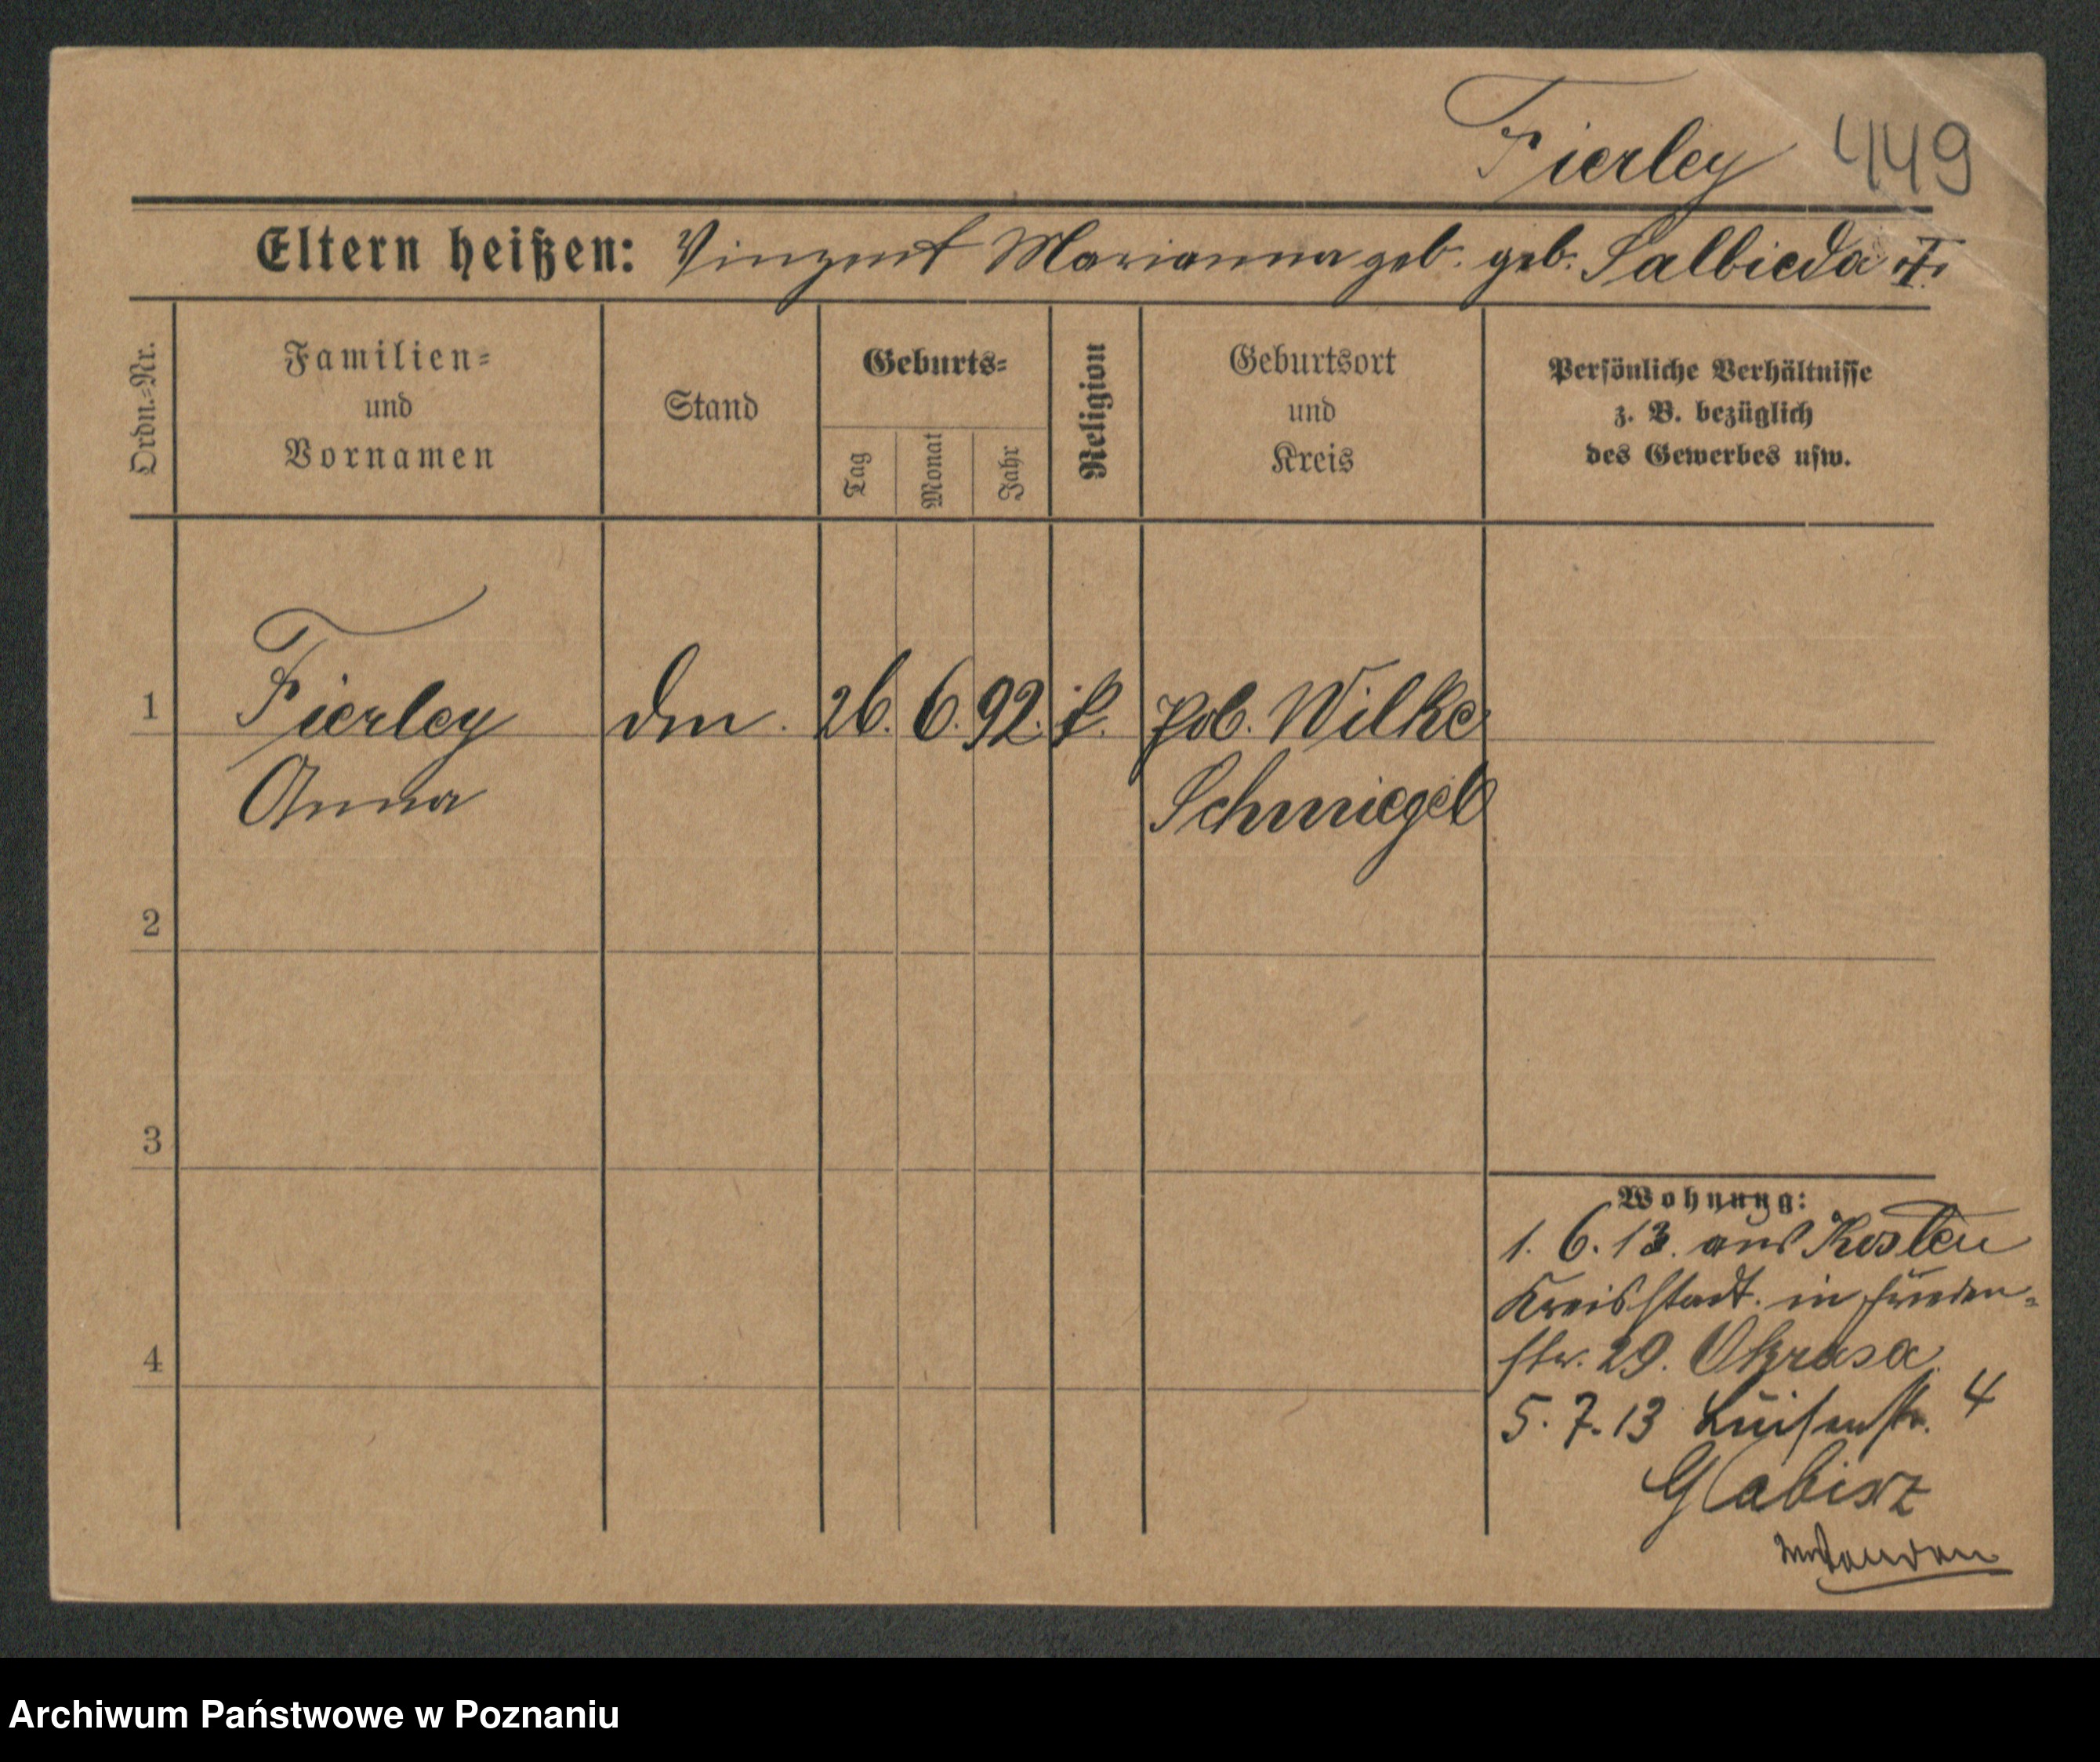 Fierley 449
Eltern heißen: Vinzent Marianna geb. geb. Salbieda
Ordn.=Nr.
Familien=
und
Vornamen
Stand
Geburts=
Tag
Monat
Jahr
Religion
Geburtsort
und
Kreis
Persönliche Verhältnisse
z. B. bezüglich
des Gewerbes usw.
1 Fierley 26. 6. 92. k. Wilke
Anna Schmiegel
2
3
4
Wohnung:
1. 6. 13. aus Kosten
Kreisstadt. in Frieden=
str. 29. Okrasa
5. 7. 13 Luisenstr. 4
Glabisz
Archiwum Państwowe w Poznaniu